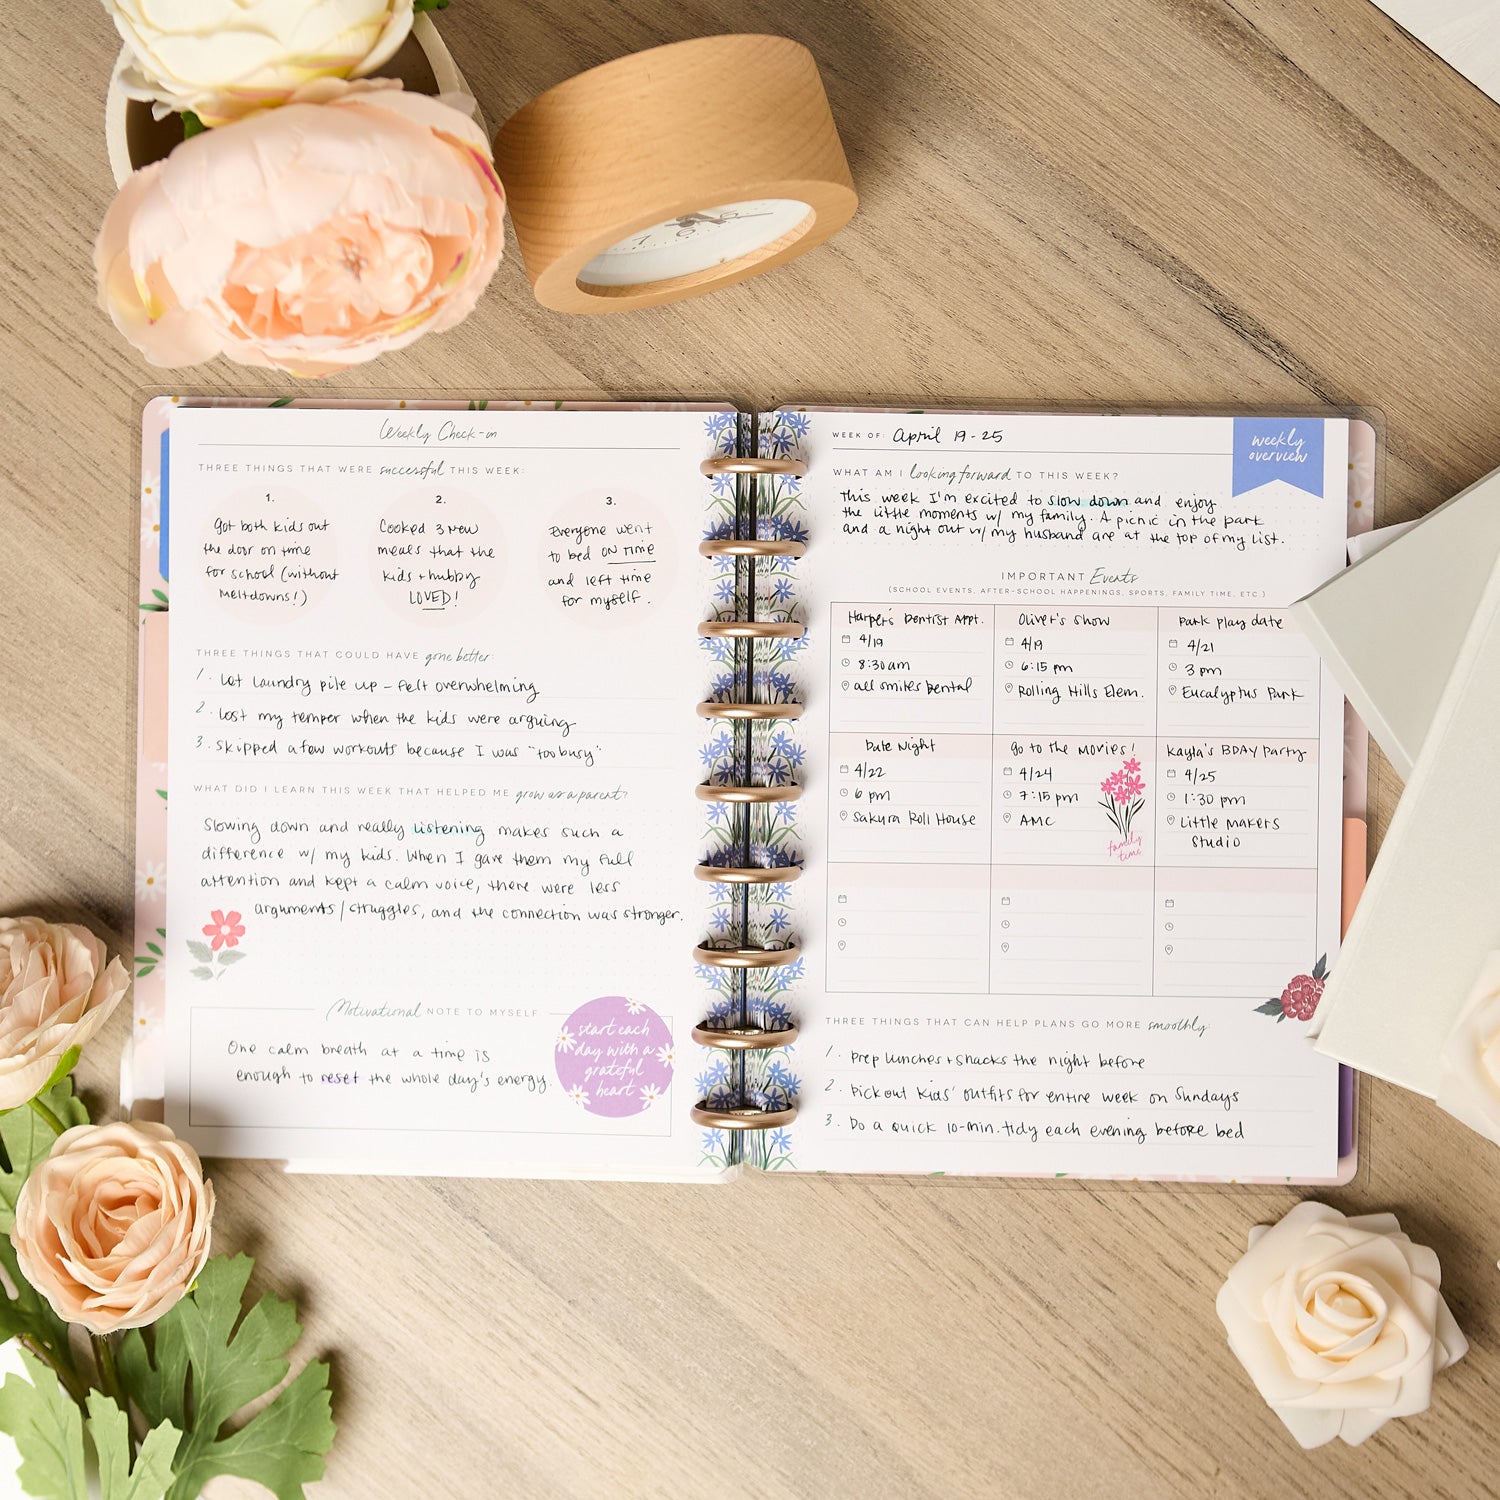 Weekly Check-in
THREE THINGS THAT WERE successful THIS WEEK:
1.
Got both kids out
the door on time
for school (without
meltdowns!)
2.
Cooked 3 new
meals that the
kids + hubby
LOVED!
3.
Everyone went
to bed ON TIME
and left time
for myself.
THREE THINGS THAT COULD HAVE gone better:
1. Let laundry pile up - felt overwhelming
2. Lost my temper when the kids were arguing
3. Skipped a few workouts because I was "too busy"
WHAT DID I LEARN THIS WEEK THAT HELPED ME grow as a parent?
Slowing down and really listening makes such a
difference w/ my kids. When I gave them my full
attention and kept a calm voice, there were less
arguments/struggles, and the connection was stronger.
Motivational NOTE TO MYSELF
One calm breath at a time is
enough to reset the whole day's energy.
start each
day with a
grateful
heart
WEEK OF: April 19-25
weekly
overview
WHAT AM I looking forward TO THIS WEEK?
This week I'm excited to slow down and enjoy
the little moments w/ my family. A picnic in the park
and a night out w/ my husband are at the top of my list.
IMPORTANT Events
(SCHOOL EVENTS, AFTER-SCHOOL HAPPENINGS, SPORTS, FAMILY TIME, ETC.)
Harper's Dentist Appt.
4/19
8:30am
all smiles Dental
Oliver's Show
4/19
6:15 pm
Rolling Hills Elem.
Park play date
4/21
3 pm
Eucalyptus Park
Date Night
4/22
6 pm
Sakura Roll House
Go to the movies!
4/24
7:15 pm
AMC
family
time
Kayla's BDAY Party
4/25
1:30 pm
Little Makers
Studio
THREE THINGS THAT CAN HELP PLANS GO MORE smoothly:
1. Prep lunches + snacks the night before
2. Pick out kids' outfits for entire week on Sundays
3. Do a quick 10-min. tidy each evening before bed